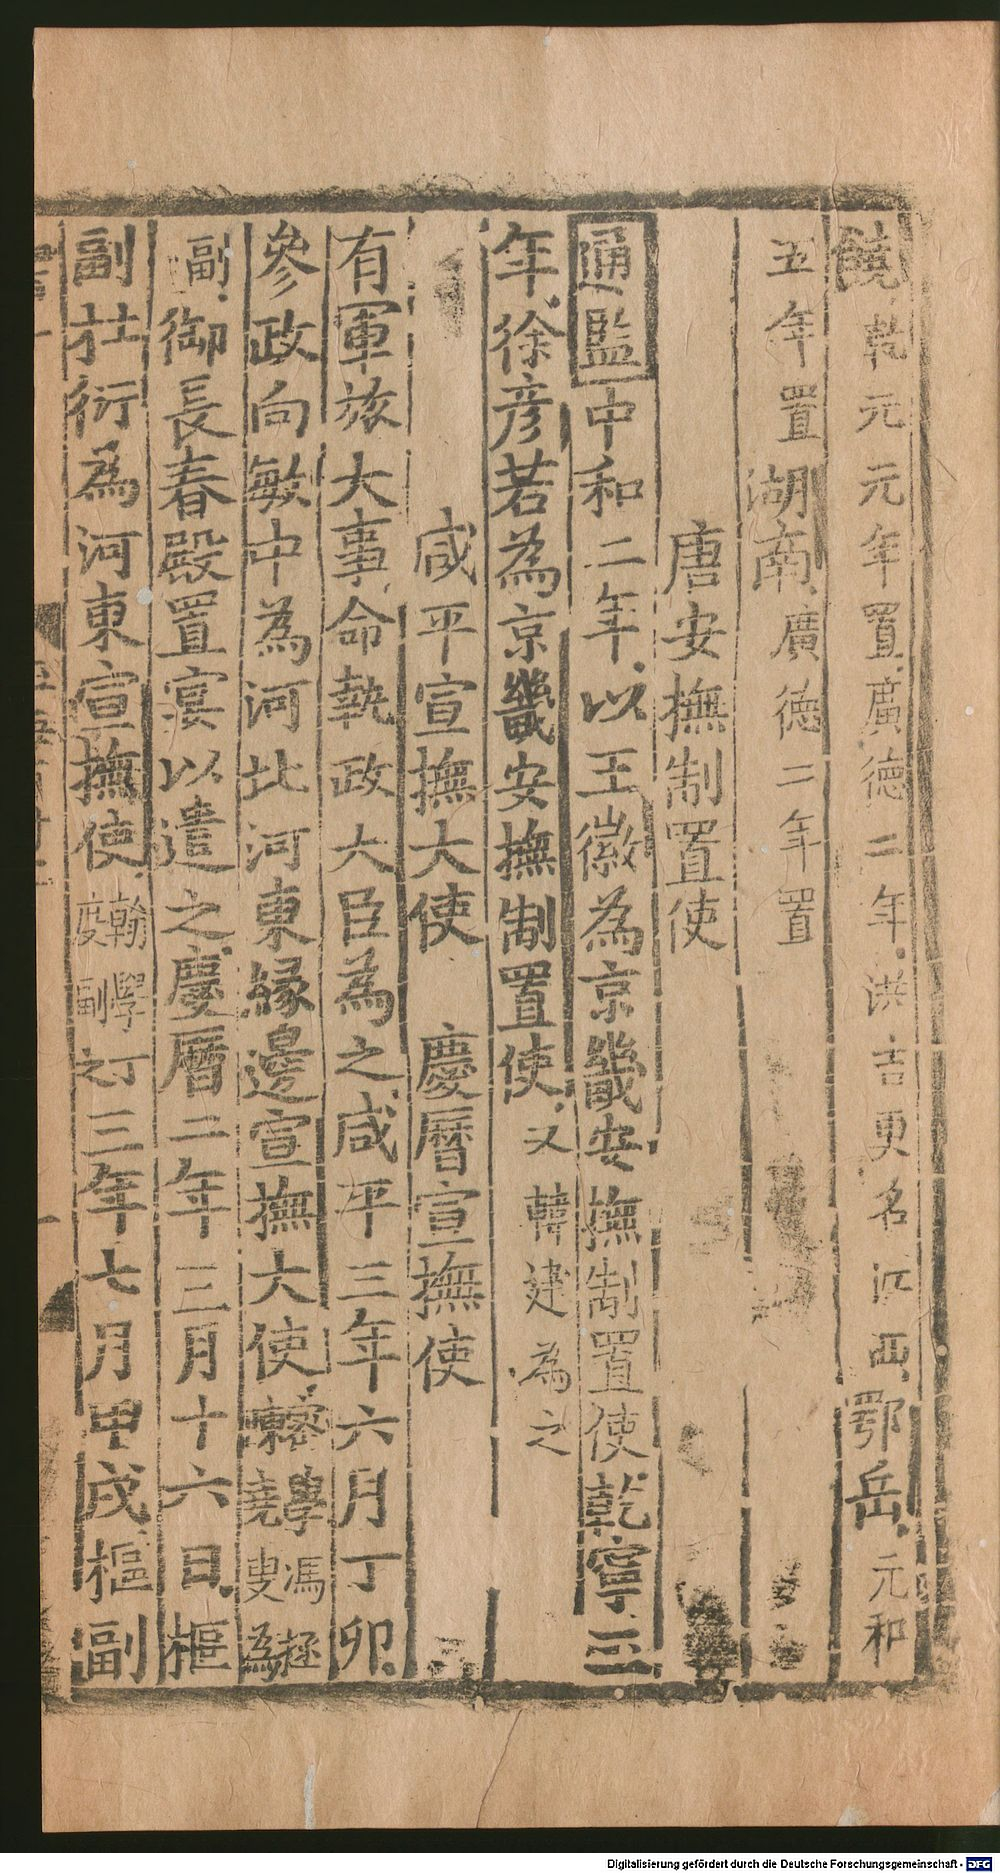 饒乾元元年置廣德二年洪吉更名江西鄂岳元和
五年置湖南廣德二年置
唐安撫制置使
通監中和二年以王徽為京畿安撫制置使乾寧三
年徐彦若為京畿安撫制置使又韓建為之
咸平宣撫大使 慶曆宣撫使
有軍旅大事命執政大臣為之咸平三年六月丁卯
參政向敏中為河北河東緣邊宣撫大使密學馮拯陳堯叟為
副御長春殿置宴以遣之慶曆二年三月十六日樞
副杜衍為河東宣撫使翰學丁度副之三年七月甲戌樞副
Digitalisierung gefördert durch die Deutsche Forschungsgemeinschaft - DFG